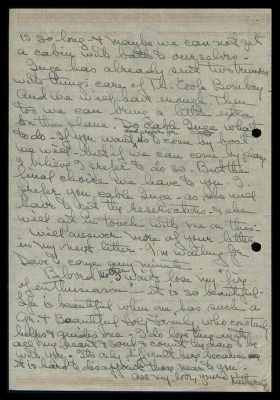 is so long & maybe we can not get
a cabin with bath to ourselves.
Inga has already sent two trunks
with things care of Th. Cook Bombay
And we will have enough. Then
too we can bring a little extra
on the plane. So cable Inga what
to do and prepare for. If you want us to come by boat
we will but if we can come by plane
I believe I prefer to do so. But the
final choice we leave to you. I
prefer you cable Inga - as she will
have to get the reservations & she
will get in touch with me on this.
Will answer more of your letter
in my next letter. I'm waiting for
Dear to come any minute.
Beloved never lose my "fire
of enthusiasm" - it is so beautiful
life is beautiful when one has such a
Gr. & Beautiful Holy family who constantly
helps & guides one. I do love you with
all my heart & soul & count the days to be
with you. It's only difficult here because
it is hard to disappoint those near to you.
All my love, yours